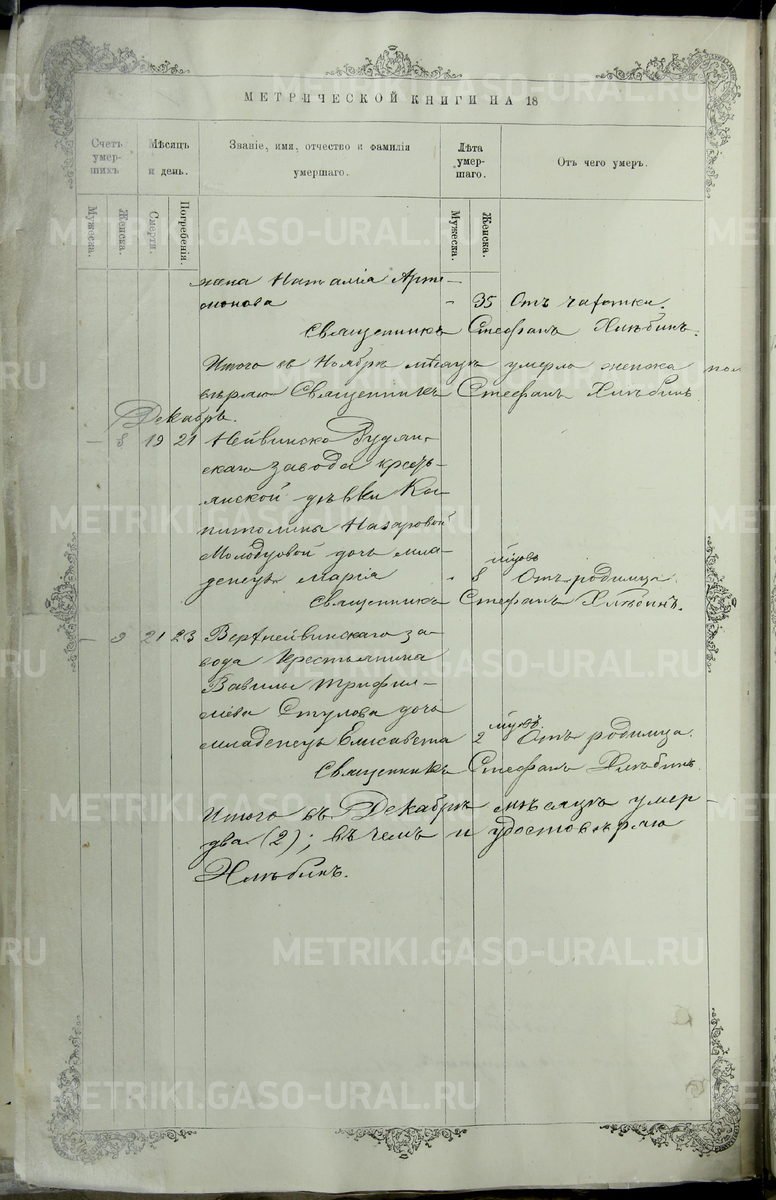 МЕТРИЧЕСКОЙ КНИГИ НА 18
Счетъ умер-шихъ
Мѣсяцъ и день.
Званіе, имя, отчество и фамилія умершаго.
Лѣта умер-шаго.
Отъ чего умеръ.
Мужеска. Женска. Смерти. Погребенія. Мужеска. Женска.
жена Наталія Арте-
монова - 35 Отъ чахотки.
Священникъ Стефанъ Хлѣбинъ.
Итого въ Ноябрѣ мѣсяцѣ умерло женска пол
вѣряю Священникъ Стефанъ Хлѣбинъ
Декабрь.
- 8 19 21 Нейвинско Рудян-
скаго завода крестъ-
янской дѣвки Ка-
питолины Назаровой
Молодцовой дочь мла-
денецъ Марія - 8 мцовъ Отъ родимца.
Священникъ Стефанъ Хлѣбинъ.
- 9 21 23 Верхнейвинскаго за-
вода Крестьянина
Вавилы Трифил-
лiева Стулова дочь
младенецъ Елисавета 2 мцовъ. Отъ родимца.
Священникъ Стефанъ Хлѣбинъ.
Итого въ Декабрѣ мѣсяцѣ умер-
два (2); въ чемъ и удостовѣряю
Хлѣбинъ.
METRIKI.GASO-URAL.RU